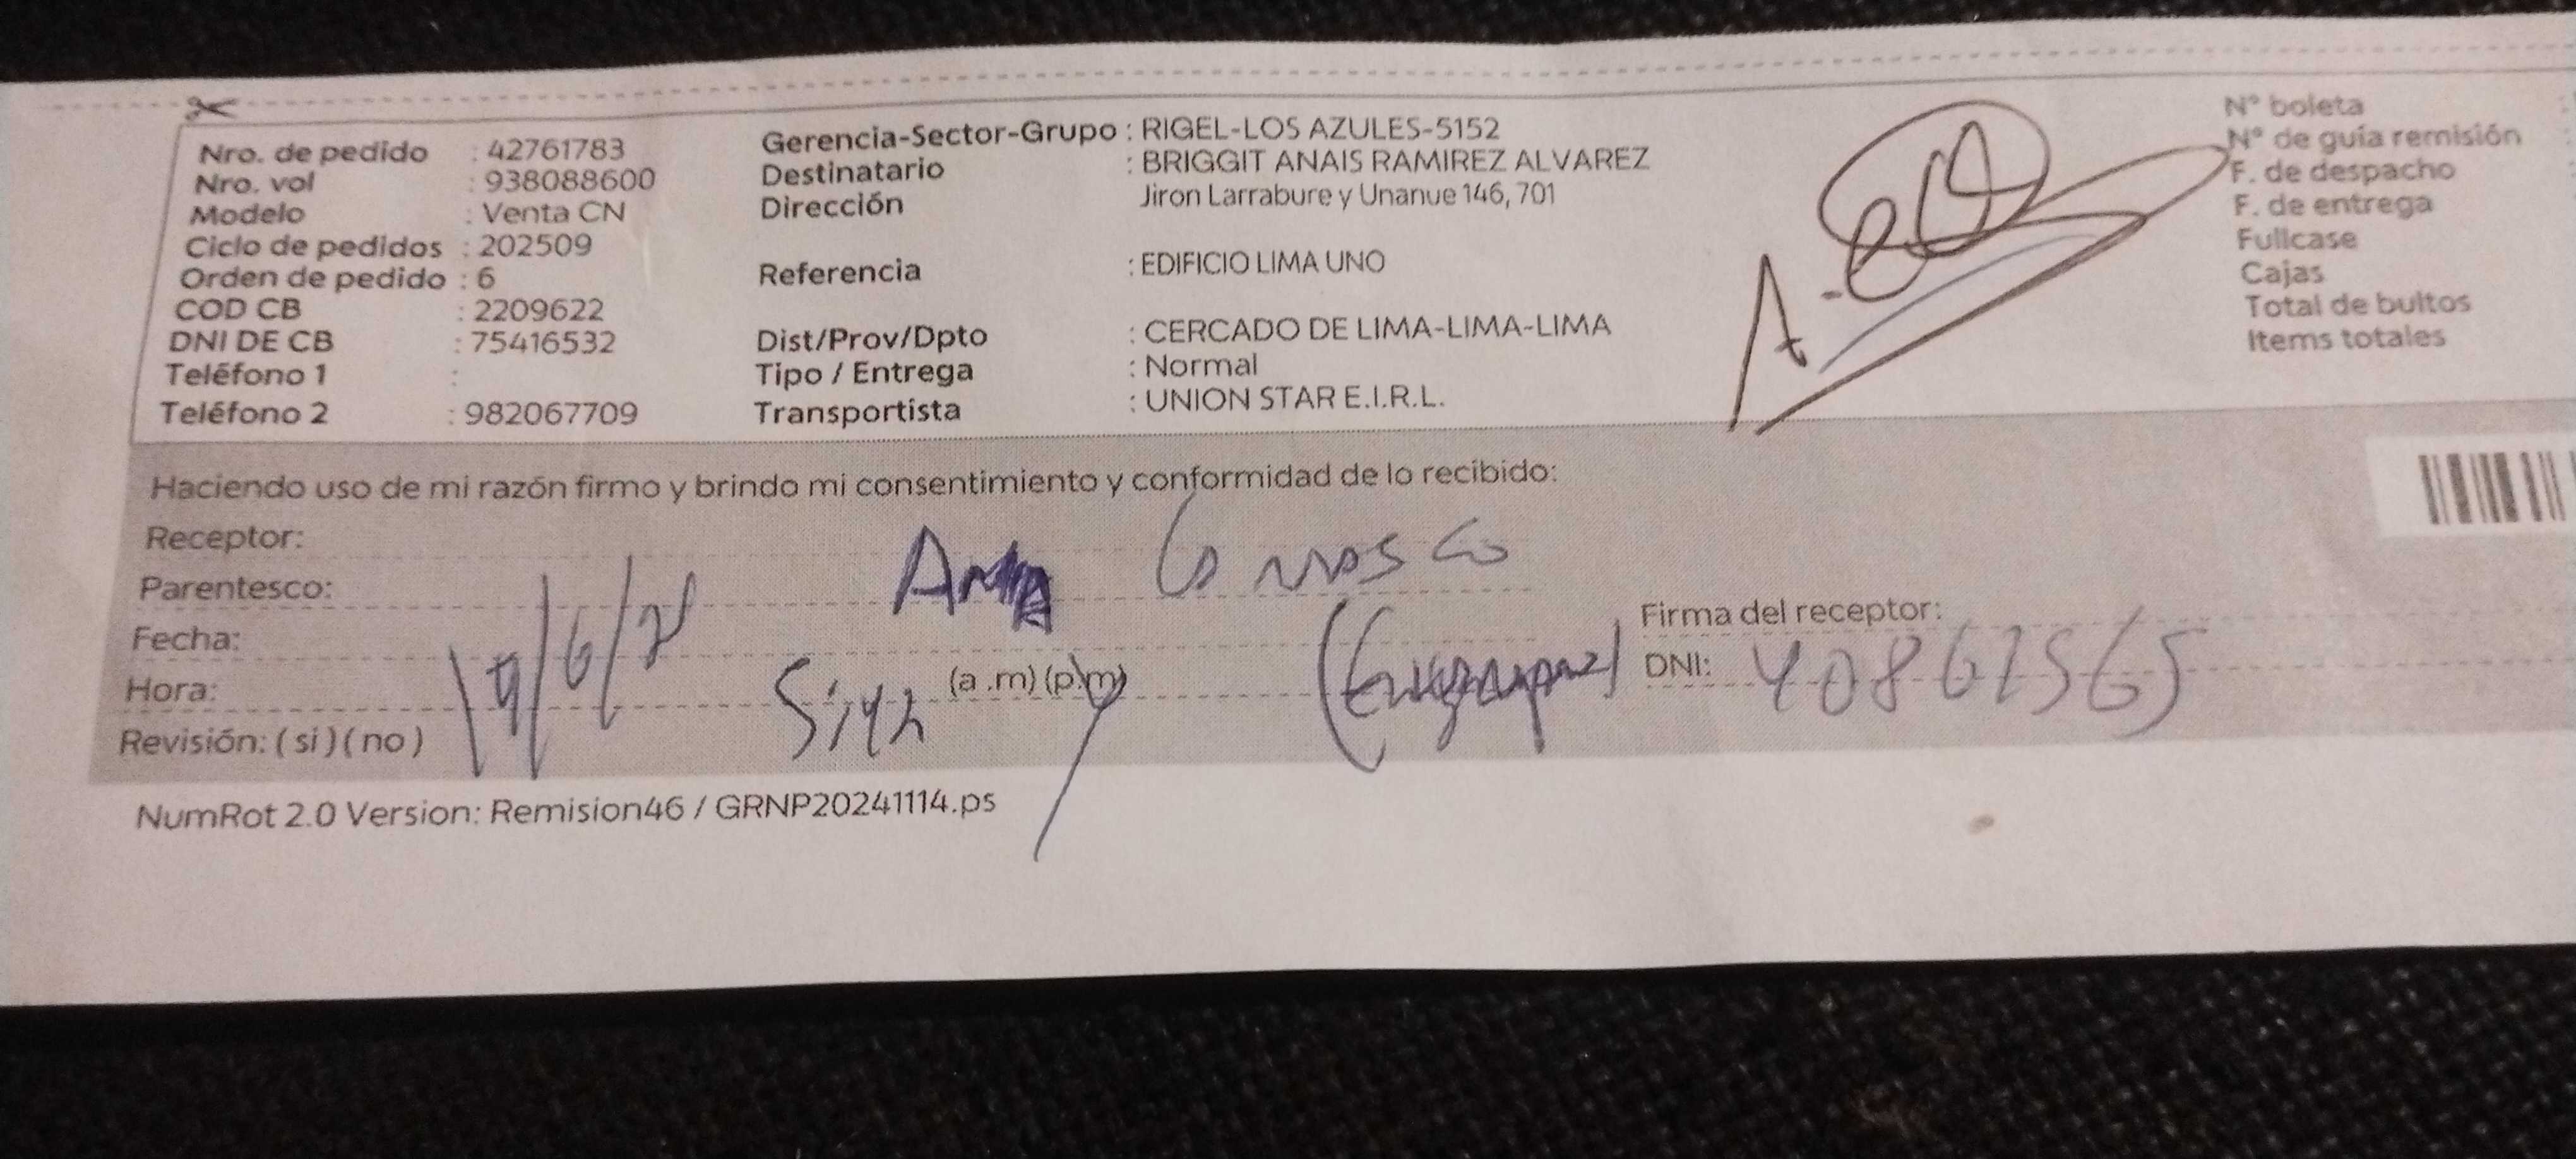 Nro. de pedido : 42761783
Nro. vol : 938088600
Modelo : Venta CN
Ciclo de pedidos : 202509
Orden de pedido : 6
COD CB : 2209622
DNI DE CB : 75416532
Teléfono 1 :
Teléfono 2 : 982067709
Gerencia-Sector-Grupo : RIGEL-LOS AZULES-5152
Destinatario : BRIGGIT ANAIS RAMIREZ ALVAREZ
Dirección Jiron Larrabure y Unanue 146, 701
Referencia : EDIFICIO LIMA UNO
Dist/Prov/Dpto : CERCADO DE LIMA-LIMA-LIMA
Tipo / Entrega : Normal
Transportista : UNION STAR E.I.R.L.
N° boleta
N° de guía remisión
F. de despacho
F. de entrega
Fullcase
Cajas
Total de bultos
Items totales
Haciendo uso de mi razón firmo y brindo mi consentimiento y conformidad de lo recibido:
Receptor:
Parentesco:
Fecha: 19/6/
Hora: (a .m) (p.m)
Revisión: ( si ) ( no )
Firma del receptor:
DNI:
NumRot 2.0 Version: Remision46 / GRNP20241114.ps